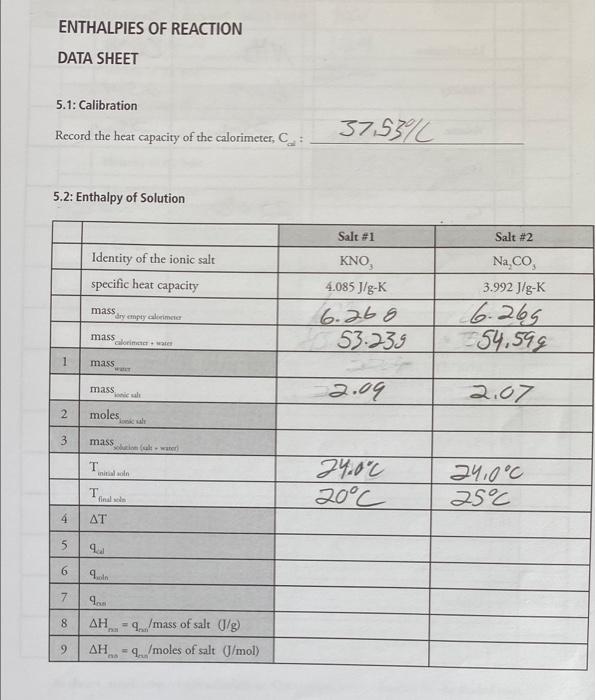 ENTHALPIES OF REACTION
DATA SHEET
5.1: Calibration
Record the heat capacity of the calorimeter, C_cal : 37.53°/C
5.2: Enthalpy of Solution
Salt #1 Salt #2
Identity of the ionic salt KNO₃ Na₂CO₃
specific heat capacity 4.085 J/g-K 3.992 J/g-K
mass dry empty calorimeter 6.268 6.26g
mass calorimeter + water 53.23g 54.59g
1 mass water
mass ionic salt 2.09 2.07
2 moles ionic salt
3 mass solution (salt + water)
T initial soln 24.0°C 24.0°C
T final soln 20°C 25°C
4 ΔT
5 q_cal
6 q_soln
7 q_rxn
8 ΔH_rxn = q_rxn/mass of salt (J/g)
9 ΔH_rxn = q_rxn/moles of salt (J/mol)